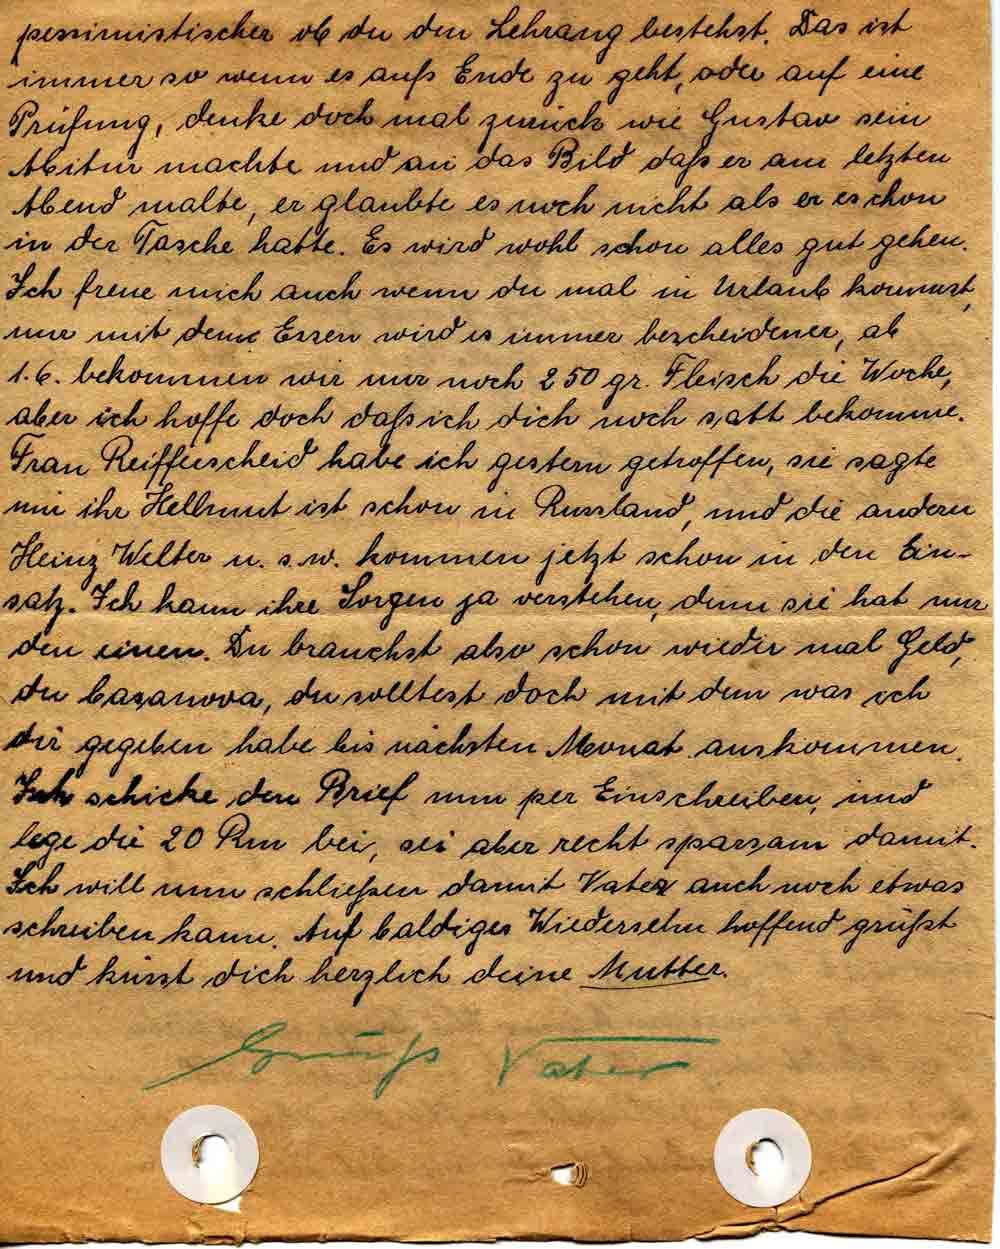 pessimistischer ob du den Lehrang bestehst. Das ist
immer so wenn es aufs Ende zu geht, oder auf eine
Prüfung, denke doch mal zurück wie Gustav sein
Abitur machte und an das Bild daß er am letzten
Abend malte, er glaubte es noch nicht als er es schon
in der Tasche hatte. Es wird wohl schon alles gut gehen.
Ich freue mich auch wenn du mal in Urlaub kommst,
nur mit dem Essen wird es immer bescheidener, ab
1.6. bekommen wir nur noch 250 gr. Fleisch die Woche,
aber ich hoffe doch daß ich dich noch satt bekomme.
Frau Reifferscheid habe ich gestern getroffen, sie sagte
mir ihr Hellmut ist schon in Russland, und die andern
Heinz Welter u. s. w. kommen jetzt schon in den Ein-
satz. Ich kann ihre Sorgen ja verstehen, denn sie hat nur
den einen. Du brauchst also schon wieder mal Geld,
du Casanova, du solltest doch mit dem was ich
dir gegeben habe bis nächsten Monat auskommen.
Ich schicke den Brief nun per Einschreiben, und
lege die 20 Rm bei, sei aber recht sparsam damit.
Ich will nun schließen damit Vater auch noch etwas
schreiben kann. Auf baldiges Wiedersehn hoffend grüßt
und küsst dich herzlich deine Mutter.
Gruß Vater